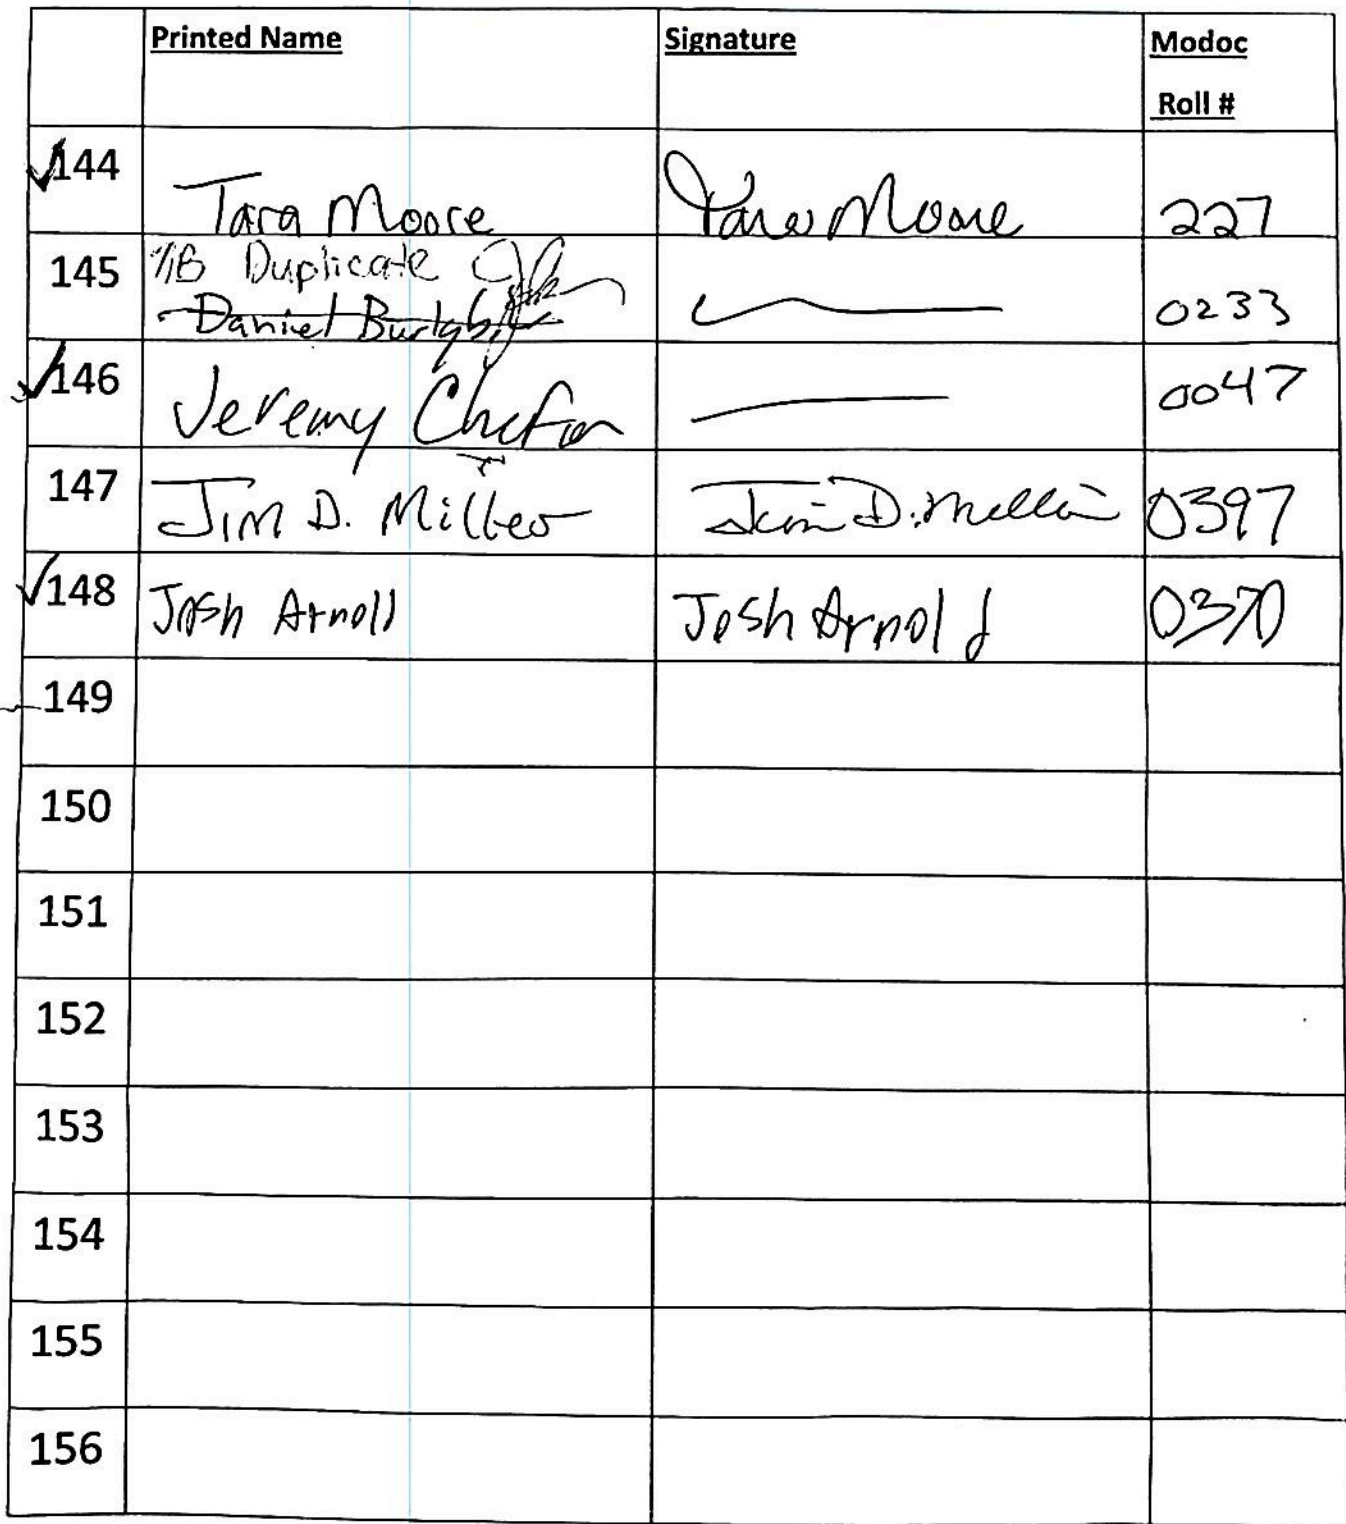 Printed Name Signature Modoc
Roll #
144 Tara Moore Tara Moore 227
145 Duplicate
Daniel 0233
146 Jeremy 0047
147 Jim D. Miller Jim D. Miller 0397
148 Josh Arnold Josh Arnold 0370
149
150
151
152
153
154
155
156